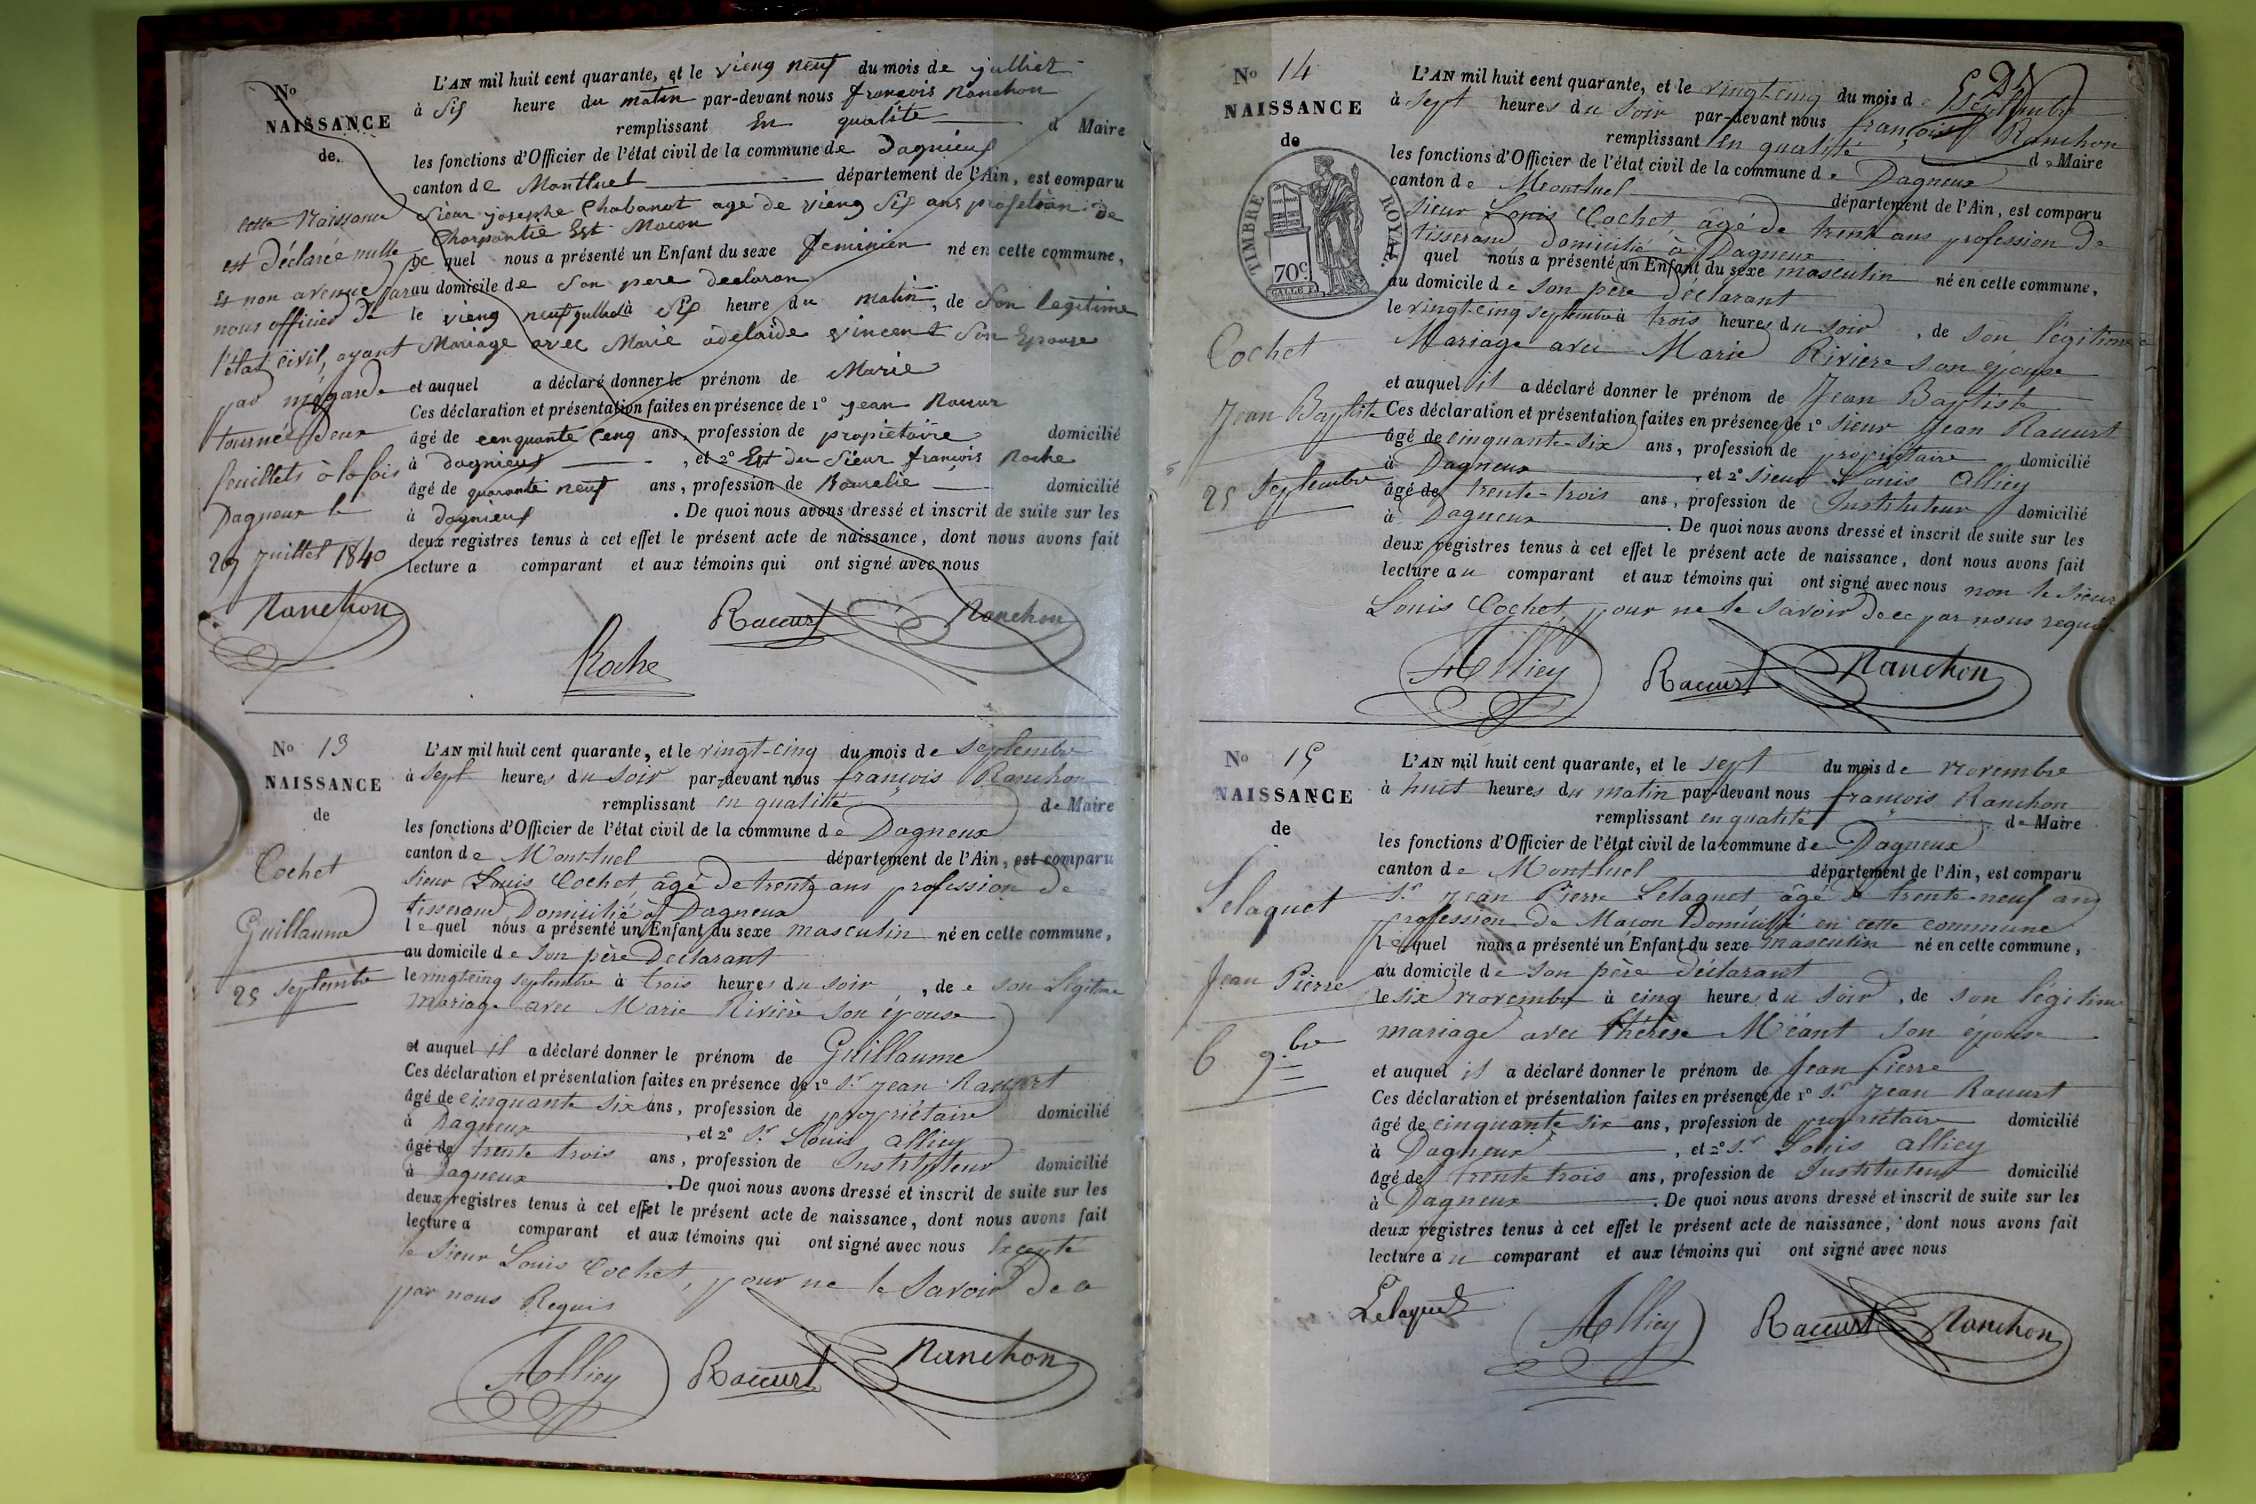 No
NAISSANCE
de.
cette Naissance
est déclarée nulle
et non avenue par
nous officier de
l'état civil, ayant
par mégarde
tourné deux
feuillets à la fois
Dagneux le
29 Juillet 1840
Ranchon
L'AN mil huit cent quarante, et le vieng neuf du mois de julliet
à sis heure du matin par-devant nous françois Ranchon
remplissant En qualité d Maire
les fonctions d'Officier de l'état civil de la commune de Dagnieus
canton de Montluel département de l'Ain, est comparu
Sieur josephe Chabanot age de vieng sis ans profession de
Charpantie Est Macon
le quel nous a présenté un Enfant du sexe feminien né en cette commune,
au domicile de son pere declaran
le vieng neuf jullet à sis heure du matin, de son legitime
Mariage avec Marie adelaide vincent son Epouse
et auquel a déclaré donner le prénom de Marie
Ces déclaration et présentation faites en présence de 1° jean Racur
âgé de cenquante Ceng ans, profession de propiétaire domicilié
à dagnieus, et 2° Est du Sieur françois Roche
âgé de quarante neuf ans, profession de domicilié
à dagnieus. De quoi nous avons dressé et inscrit de suite sur les
deux registres tenus à cet effet le présent acte de naissance, dont nous avons fait
lecture a comparant et aux témoins qui ont signé avec nous
Roche Raccurt Ranchon
No 13
NAISSANCE
de
Cochet
Guillaume
25 septembre
L'AN mil huit cent quarante, et le vingt-cinq du mois de septembre
à sept heures du soir par-devant nous françois Ranchon
remplissant en qualité de Maire
les fonctions d'Officier de l'état civil de la commune de Dagneux
canton de Montluel département de l'Ain, est comparu
sieur Louis Cochet, âgé de trente ans profession de
tisserand, Domicilié à Dagneux
le quel nous a présenté un Enfant du sexe masculin né en cette commune,
au domicile de son père Déclarant
le vingt-cinq septembre à trois heures du soir, de son Légitime
mariage avec Marie Rivière son épouse
et auquel il a déclaré donner le prénom de Guillaume
Ces déclaration et présentation faites en présence de 1° Sr jean Raccurt
âgé de cinquante six ans, profession de propriétaire domicilié
à Dagneux, et 2° Sr Louis Alliey
âgé de trente trois ans, profession de Instituteur domicilié
à Dagneux. De quoi nous avons dressé et inscrit de suite sur les
deux registres tenus à cet effet le présent acte de naissance, dont nous avons fait
lecture a comparant et aux témoins qui ont signé avec nous Excepté
le sieur Louis Cochet, pour ne le savoir De ce
par nous Requis
Alliey Raccurt Ranchon
No 14
NAISSANCE
de
TIMBRE ROYAL.
70c.
Cochet
Jean Baptiste
25 septembre
L'AN mil huit cent quarante, et le vingt cinq du mois de septembre
à sept heures du soir par-devant nous françois Ranchon
remplissant en qualité de Maire
les fonctions d'Officier de l'état civil de la commune de Dagneux
canton de Montluel département de l'Ain, est comparu
sieur Louis Cochet, âgé de trente ans profession de
tisserand, domicilié à Dagneux
quel nous a présenté un Enfant du sexe masculin né en cette commune,
au domicile de son père déclarant
le vingt-cinq septembre à trois heures du soir, de son légitime
Mariage avec Marie Riviere son épouse
et auquel il a déclaré donner le prénom de Jean Baptiste
Ces déclaration et présentation faites en présence de 1° sieur Jean Raccurt
âgé de cinquante-six ans, profession de propriétaire domicilié
à Dagneux, et 2° sieur Louis Alliey
âgé de trente-trois ans, profession de Instituteur domicilié
à Dagneux. De quoi nous avons dressé et inscrit de suite sur les
deux registres tenus à cet effet le présent acte de naissance, dont nous avons fait
lecture au comparant et aux témoins qui ont signé avec nous non le sieur
Louis Cochet, pour ne le savoir de ce par nous requis
Alliey Raccurt Ranchon
No 15
NAISSANCE
de
Lelaquet
Jean Pierre
6 9bre
L'AN mil huit cent quarante, et le sept du mois de novembre
à huit heures du matin par-devant nous françois Ranchon
remplissant en qualité de Maire
les fonctions d'Officier de l'état civil de la commune de Dagneux
canton de Montluel département de l'Ain, est comparu
Sr jean Pierre Lelaquet, âgé de trente-neuf ans
profession de Maçon Domicilié en cette commune
le quel nous a présenté un Enfant du sexe masculin né en cette commune,
au domicile de son père déclarant
le six novembre à cinq heures du soir, de son légitime
mariage avec thérèse Méant son épouse
et auquel il a déclaré donner le prénom de Jean Pierre
Ces déclaration et présentation faites en présence de 1° Sr jean Raccurt
âgé de cinquante six ans, profession de propriétaire domicilié
à Dagneux, et 2° Sr Louis Alliey
âgé de trente trois ans, profession de Instituteur domicilié
à Dagneux. De quoi nous avons dressé et inscrit de suite sur les
deux registres tenus à cet effet le présent acte de naissance, dont nous avons fait
lecture au comparant et aux témoins qui ont signé avec nous
Lelaquet Alliey Raccurt Ranchon